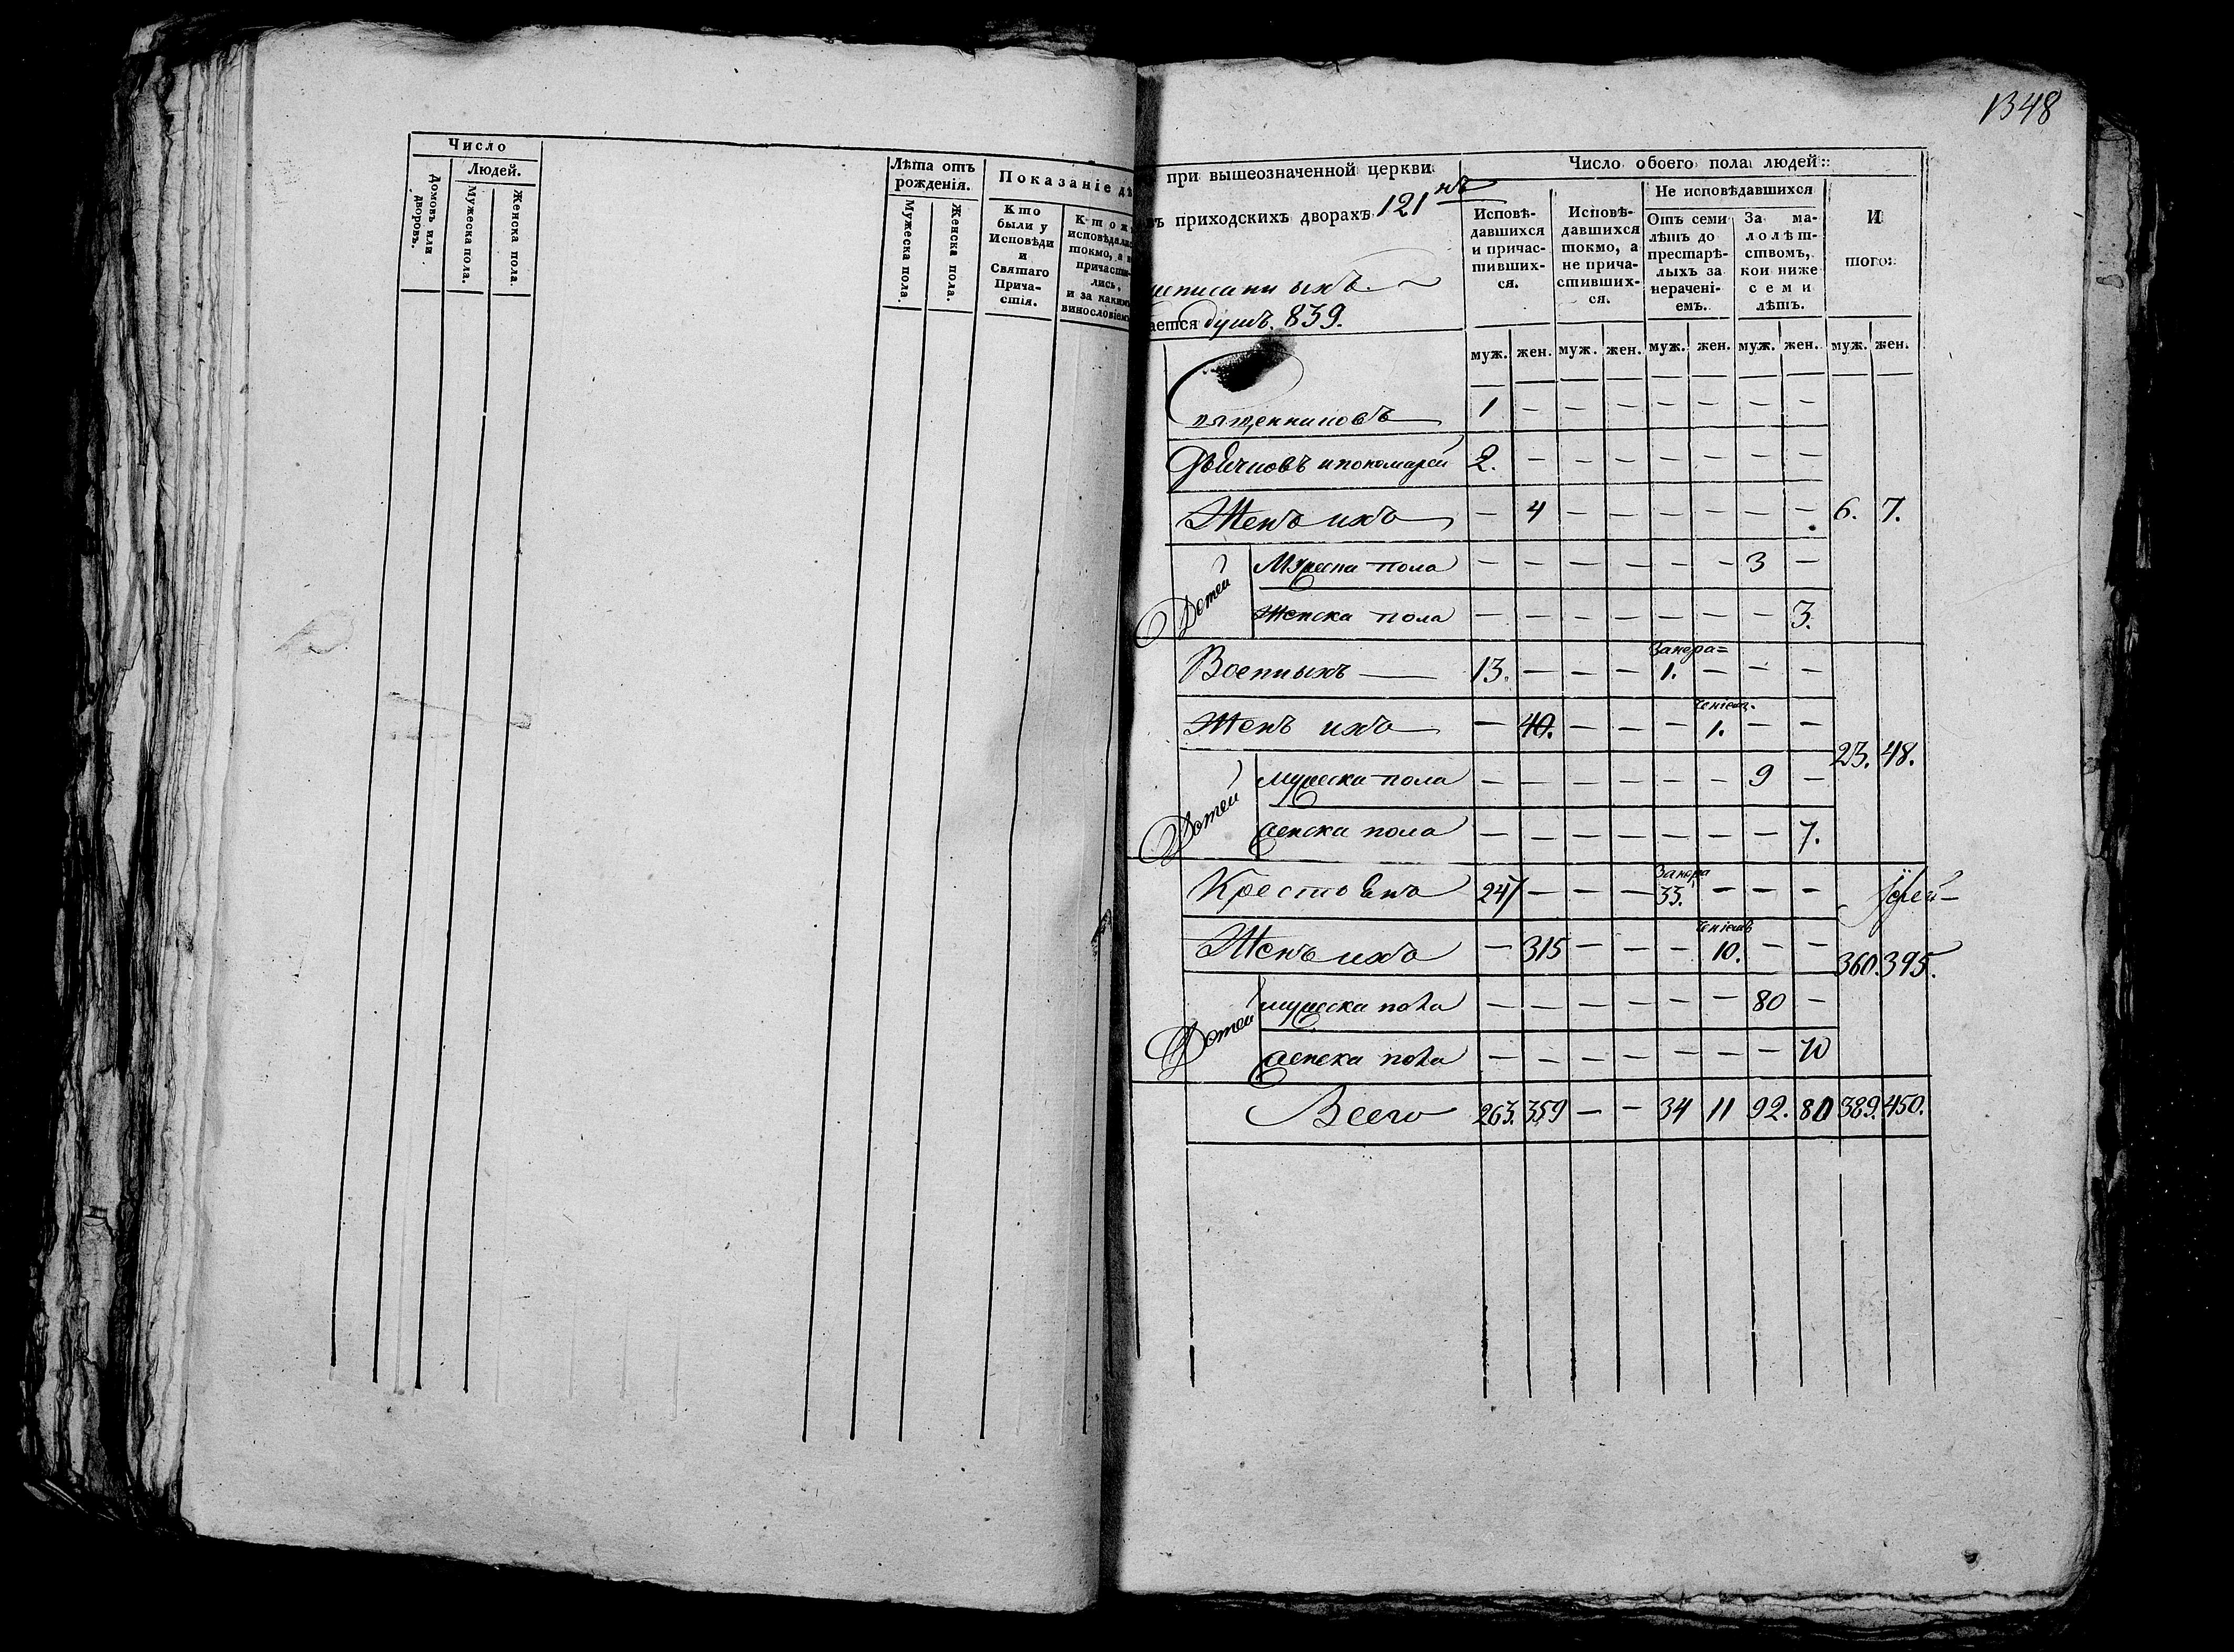 Число
Людей.
Домовъ или дворовъ.
Мужеска пола.
Женска пола.
Лѣта отъ рожденія.
Мужеска пола.
Женска пола.
Показаніе дѣ
Кто были у Исповѣди и Святаго Прича-стія.
Кто ж исповѣдали токмо, а н причасти-лись, и за каким винословіем
1348
при вышеозначенной церкви
въ приходскихъ дворахъ 121нъ
ается душъ. 839.
Число обоего пола людей::
Исповѣ-
давшихся
и причас-
тивших-
ся.
Исповѣ-
давшихся
токмо, а
не прича-
стивших-
ся.
Не исповѣдавшихся
Отъ семи
лѣтъ до
престарѣ-
лыхъ за
нерачені-
емъ.
За ма-
лолѣт-
ствомъ,
кои ниже
семи
лѣтъ.
И
того:
муж. жен. муж. жен. муж. жен. муж. жен. муж. жен.
Священниковъ 1 — — — — — — —
Дьячковъ и пономарей 2. — — — — — — —
Женъ ихъ — 4 — — — — — — 6. 7.
Детей
Мужеска пола — — — — — — 3 —
Женска пола — — — — — — — 3.
Военныхъ — 13. — — — Занера= 1. — — —
Женъ ихъ — 40. — — — ченіемъ. 1. — —
23. 48.
Детей
мужеска пола — — — — — — 9 —
женска пола — — — — — — — 7.
Крестьянъ 247 — — — Занера 33. — — —
Іерей —
Женъ ихъ — 315 — — — ченіемъ 10. — — 360. 395.
Детей
мужеска пола — — — — — — 80 —
женска пола — — — — — — — 70
Всего 263. 359 — — 34 11 92. 80 389. 450.